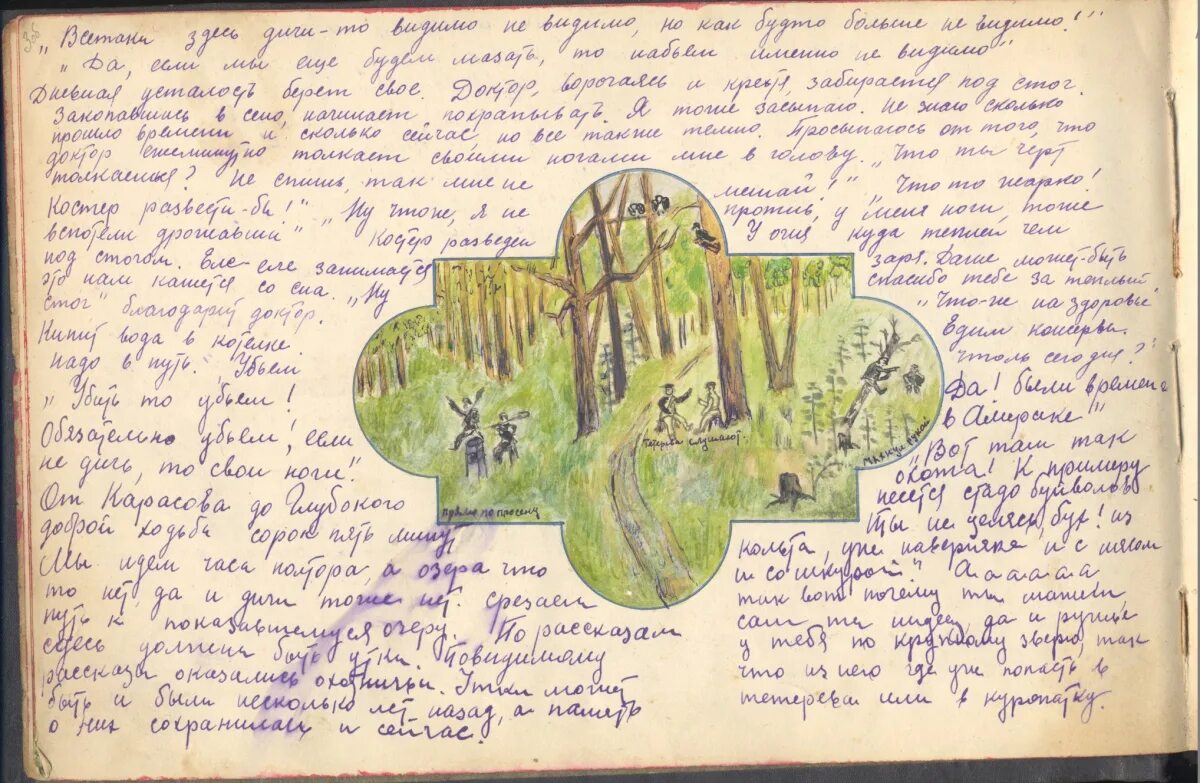 „Всетаки здесь дичи-то видимо не видимо, но как будто больше не видимо!"
„Да, если мы еще будем мазать, то набьем именно не видимо"
Дневная усталость берет свое. Доктор, ворочаясь и кряхтя, забирается под стог.
Закопавшись в сено, начинает похрапывать. Я тоже засыпаю. Не знаю сколько
прошло времени и сколько сейчас, но все также темно. Просыпаюсь от того, что
доктор ежеминутно толкает своими ногами мне в голову. „Что ты чорт
толкаешься? Не спишь, так мне не мешай!" „Что то жарко!
Костер развести-бы!" „Ну что-же, я не против, у меня ноги тоже
вспотели дрожавши" Костер разведен У огня куда теплей чем
под стогом. Еле еле занимается заря. Даже может-быть
это нам кажется со сна. „Ну спасибо тебе за теплый
стог" благодарит доктор. „Что-же на здоровье"
Кипит вода в котелке. Едим консервы.
надо в путь. „Убьем штоль сегодня?"
„Убить то убьем!
Обязательно убьем, если
не дичь, то свои ноги!"
От Карасова до Глубокого
доброй ходьбы сорок пять минут
Мы идем часа полтора, а озера что
то нет, да и дичи тоже нет. Срезаем
путь к показавшемуся озеру. По рассказам
здесь должны быть утки. Повидимому
рассказы оказались охотничьи. Утки может
быть и были несколько лет назад, а память
о них сохранилась и сейчас.
Да! были времена
в Америке"
„Вот там так
охота! К примеру
несется стадо буйволов
Ты не целясь, бух! из
кольта, уже наверняка и с мясом
и со шкурой". А а а а а а
так вот почему ты мажешь,
сам ты индеец, да и ружье
у тебя по крупному зверю, так
что из него где уж попасть в
тетерева или в куропатку.
Прямо по просеке
Тетерева слушают.